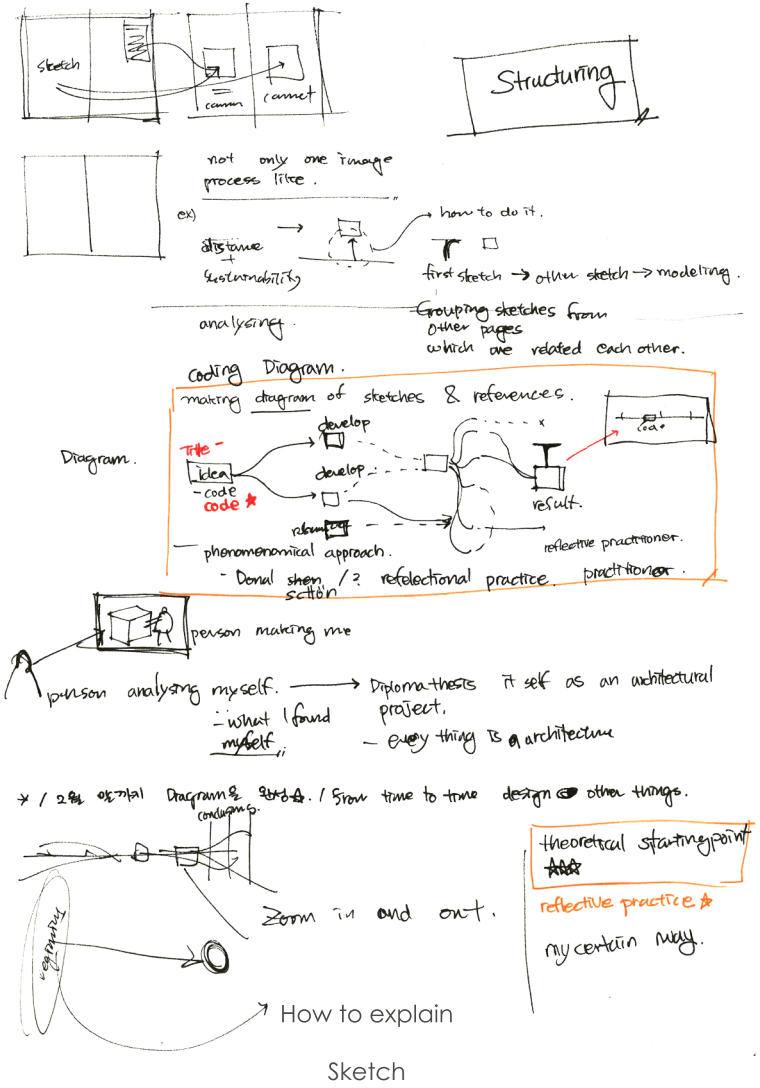 sketch
comm
connect
Structuring
not only one image
process like.
ex)
distance
+
sustainability
how to do it.
first sketch → other sketch → modeling.
analysing.
Grouping sketches from
other pages
which are related each other.
coding Diagram.
making diagram of sketches & references.
Diagram.
Title -
idea
- code
code ★
develop
develop
x
code
result.
reflective practitioner.
- phenomenomical approach.
- Donal shon / ? refelectional practice. practitioner.
person making me
person analysing myself. → Diploma thesis it self as an architectural
project.
- what I found
myself
- every thing is architecture
2월 말까지 Diagram을 완성 / from time to time design other things.
conclusions.
Zoom in and out.
theoretical starting point
★★★
reflective practice ★
my certain way.
Beginning
How to explain
Sketch